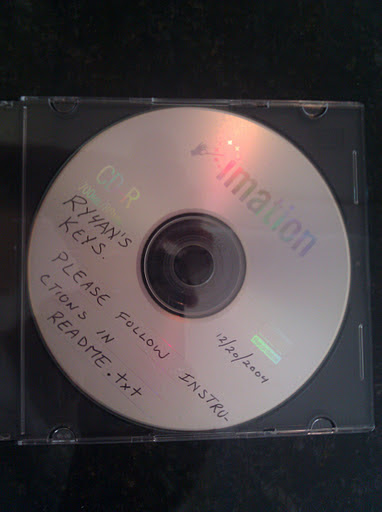 imation
CD-R
RYYAN'S
KEYS.
PLEASE FOLLOW INSTRU-
CTIONS IN
README.txt
12/20/2004